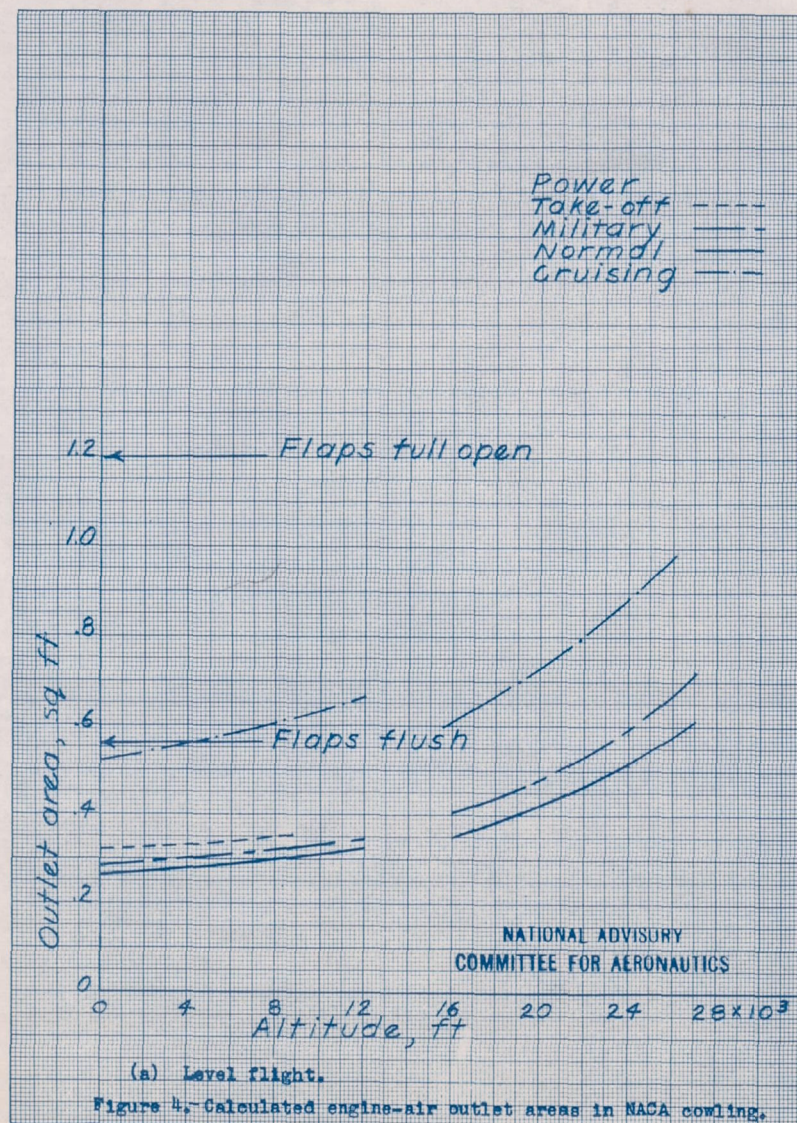 Power
Take-off
Military
Normal
Cruising
1.2
Flaps full open
1.0
.8
.6
Flaps flush
.4
.2
0
Outlet area, sq ft
NATIONAL ADVISORY
COMMITTEE FOR AERONAUTICS
0 4 8 12 16 20 24 28×10³
Altitude, ft
(a) Level flight.
Figure 4.-Calculated engine-air outlet areas in NACA cowling.